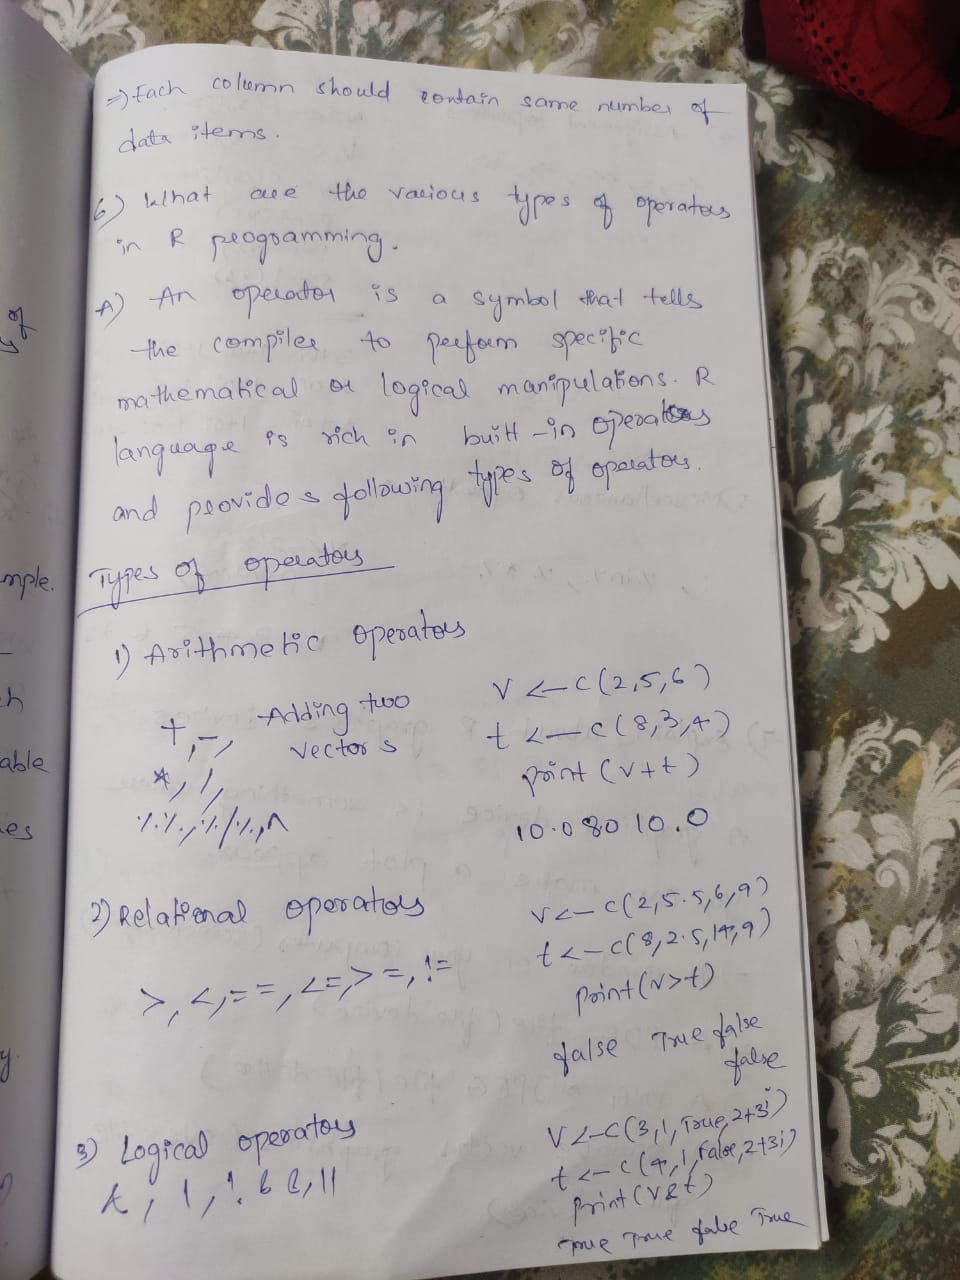 => Each column should contain same number of
data items.
6) What are the various types of operators
in R programming.
A) An operator is a symbol that tells
the compiler to perform specific
mathematical or logical manipulations. R
language is rich in built-in operators
and provides following types of operators.
Types of operators
1) Arithmetic operators
+, -, Adding two
vectors
*, /,
%%, %/%, ^
v <- c(2,5,6)
t <- c(8,3,4)
print (v+t)
10.0 80 10.0
2) Relational operators
>, <, ==, <=, >=, !=
v <- c(2,5.5,6,9)
t <- c(8,2.5,14,9)
print(v>t)
false True false
false
3) Logical operators
&, |, !, &&, ||
v <- c(3,1,True,2+3i)
t <- c(4,1,False,2+3i)
print(v&t)
True True false True
of
mple.
able
es
y.